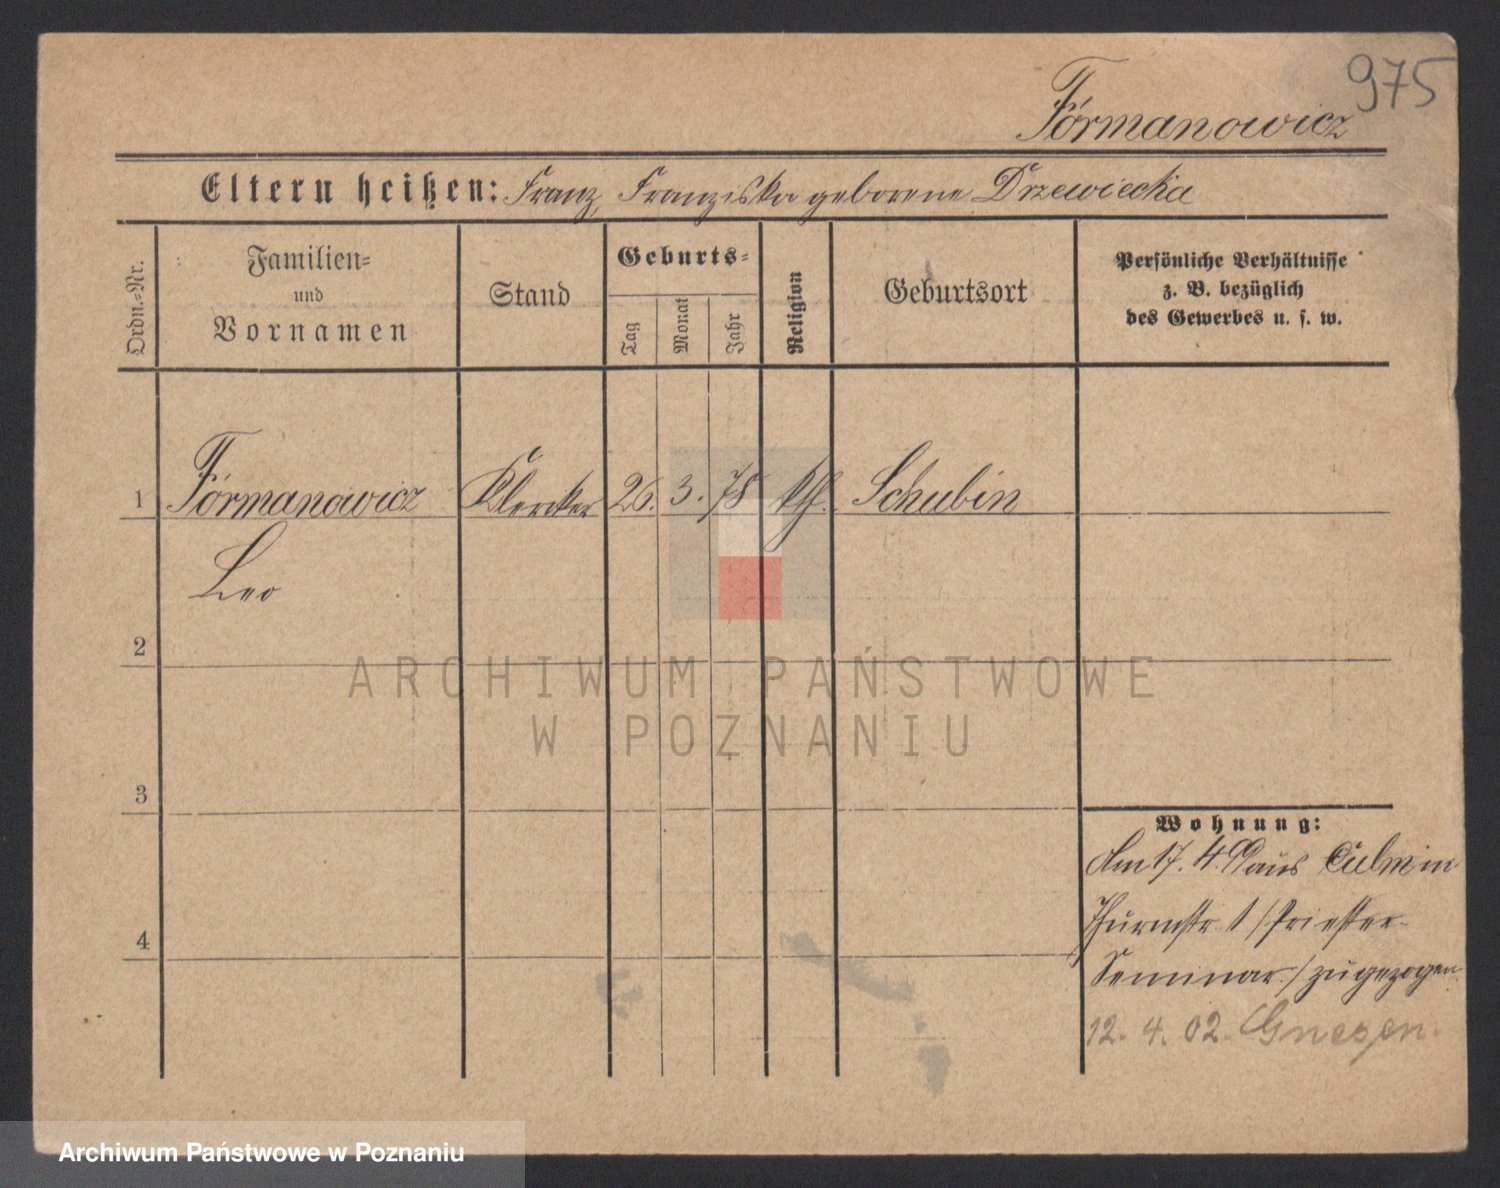 975
Formanowicz
Eltern heißen: Franz, Franziska geborene Drzewiecka
Ordn.-Nr.
Familien-
und
Vornamen
Stand
Geburts-
Tag
Monat
Jahr
Religion
Geburtsort
Persönliche Verhältnisse
z. B. bezüglich
des Gewerbes u. s. w.
1 Formanowicz Kleriker 26. 3. 78 kth. Schubin
Leo
2
3
4
Wohnung:
Am 17. 4. 99 aus Culm in
Thurmstr. 1 /Priester-
Seminar/ zugezogen
12. 4. 02. Gnesen.
ARCHIWUM PAŃSTWOWE
W POZNANIU
Archiwum Państwowe w Poznaniu